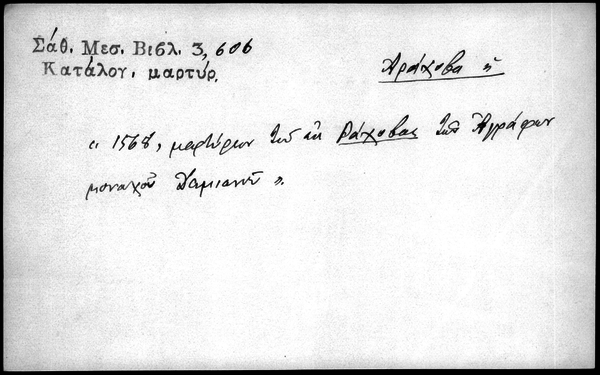 Σάθ. Μεσ. Βιβλ. 3, 606
Κατάλογ. μαρτύρ.
Ἀράχοβα ἡ
« 1568, μαρτύριον τοῦ ἐκ Ῥάχοβας τῶν Ἀγράφων
μοναχοῦ Δαμιανοῦ ».